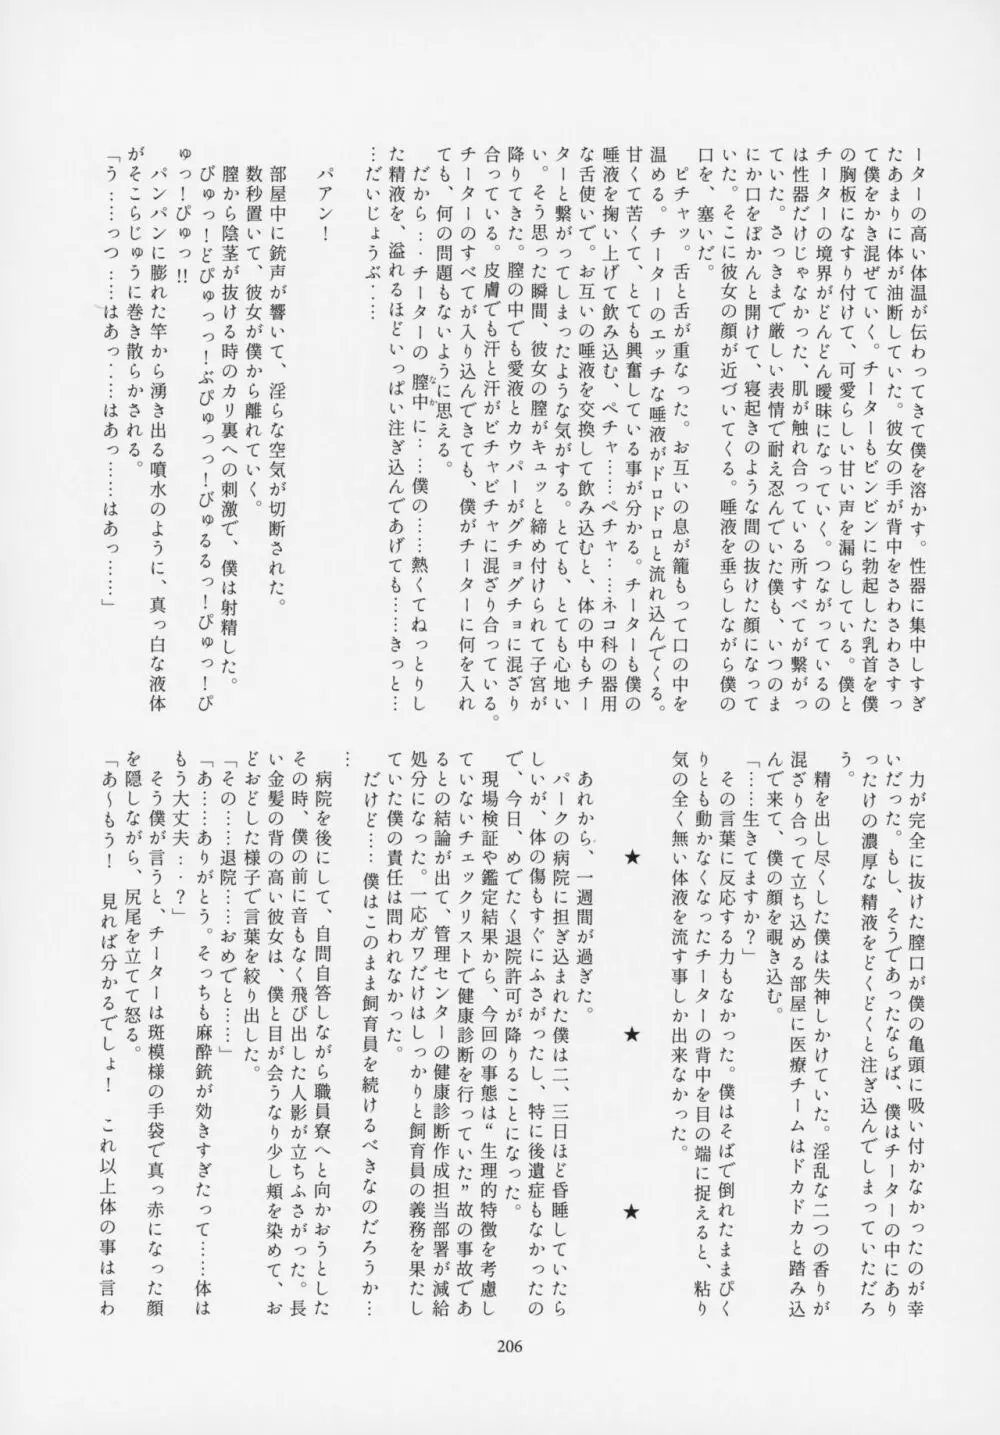 ーターの高い体温が伝わってきて僕を溶かす。性器に集中しすぎ
たあまりに体が油断していた。彼女の手が背中をさわさわさすっ
て僕をかき混ぜていく。チーターもビンビンに勃起した乳首を僕
の胸板になすり付けて、可愛らしい甘い声を漏らしている。僕と
チーターの境界がどんどん曖昧になっていく。つながっているの
は性器だけじゃなかった、肌が触れ合っている所すべてが繋がっ
ていた。さっきまで厳しい表情で耐え忍んでいた僕も、いつのま
にか口をぽかんと開けて、寝起きのような間の抜けた顔になって
いた。そこに彼女の顔が近づいてくる。唾液を垂らしながら僕の
口を、塞いだ。
ピチャッ。舌と舌が重なった。お互いの息が籠もって口の中を
温める。チーターのエッチな唾液がドロドロと流れ込んでくる。
甘くて苦くて、とても興奮している事が分かる。チーターも僕の
唾液を掬い上げて飲み込む、ペチャ……ペチャ……ネコ科の器用
な舌使いで。お互いの唾液を交換して飲み込むと、体の中もチー
ターと繋がってしまったような気がする。とても、とても心地い
い。そう思った瞬間、彼女の膣がキュッと締め付けられて子宮が
降りてきた。膣の中でも愛液とカウパーがグチョグチョに混ざり
合っている。皮膚でも汗と汗がビチャビチャに混ざり合っている。
チーターのすべてが入り込んできても、僕がチーターに何を入れ
ても、何の問題もないように思える。
だから…チーターの膣中なかに…僕の……熱くてねっとりし
た精液を、溢れるほどいっぱい注ぎ込んであげても……きっと…
…だいじょうぶ……
パアン！
部屋中に銃声が響いて、淫らな空気が切断された。
数秒置いて、彼女が僕から離れていく。
膣から陰茎が抜ける時のカリ裏への刺激で、僕は射精した。
びゅっ！どぴゅっっ！ぶぴゅっっ！びゅるるっ！ぴゅっ！ぴ
ゅっ！ぴゅっ!!
パンパンに膨れた竿から湧き出る噴水のように、真っ白な液体
がそこらじゅうに巻き散らかされる。
「う……っつ……はあっ……はあっ……はあっ……」
力が完全に抜けた膣口が僕の亀頭に吸い付かなかったのが幸
いだった。もし、そうであったならば、僕はチーターの中にあり
ったけの濃厚な精液をどくどくと注ぎ込んでしまっていただろ
う。
精を出し尽くした僕は失神しかけていた。淫乱な二つの香りが
混ざり合って立ち込める部屋に医療チームはドカドカと踏み込
んで来て、僕の顔を覗き込む。
「……生きてますか？」
その言葉に反応する力もなかった。僕はそばで倒れたままぴく
りとも動かなくなったチーターの背中を目の端に捉えると、粘り
気の全く無い体液を流す事しか出来なかった。
★　★　★
あれから、一週間が過ぎた。
パークの病院に担ぎ込まれた僕は二、三日ほど昏睡していたら
しいが、体の傷もすぐにふさがったし、特に後遺症もなかったの
で、今日、めでたく退院許可が降りることになった。
現場検証や鑑定結果から、今回の事態は“生理的特徴を考慮し
ていないチェックリストで健康診断を行っていた”故の事故であ
るとの結論が出て、管理センターの健康診断作成担当部署が減給
処分になった。一応ガワだけはしっかりと飼育員の義務を果たし
ていた僕の責任は問われなかった。
だけど……僕はこのまま飼育員を続けるべきなのだろうか…
…
病院を後にして、自問自答しながら職員寮へと向かおうとした
その時、僕の前に音もなく飛び出した人影が立ちふさがった。長
い金髪の背の高い彼女は、僕と目が会うなり少し頬を染めて、お
どおどした様子で言葉を絞り出した。
「その……退院……おめでと……」
「あ……ありがとう。そっちも麻酔銃が効きすぎたって……体は
もう大丈夫…？」
そう僕が言うと、チーターは斑模様の手袋で真っ赤になった顔
を隠しながら、尻尾を立てて怒る。
「あ～もう！　見れば分かるでしょ！　これ以上体の事は言わ
206